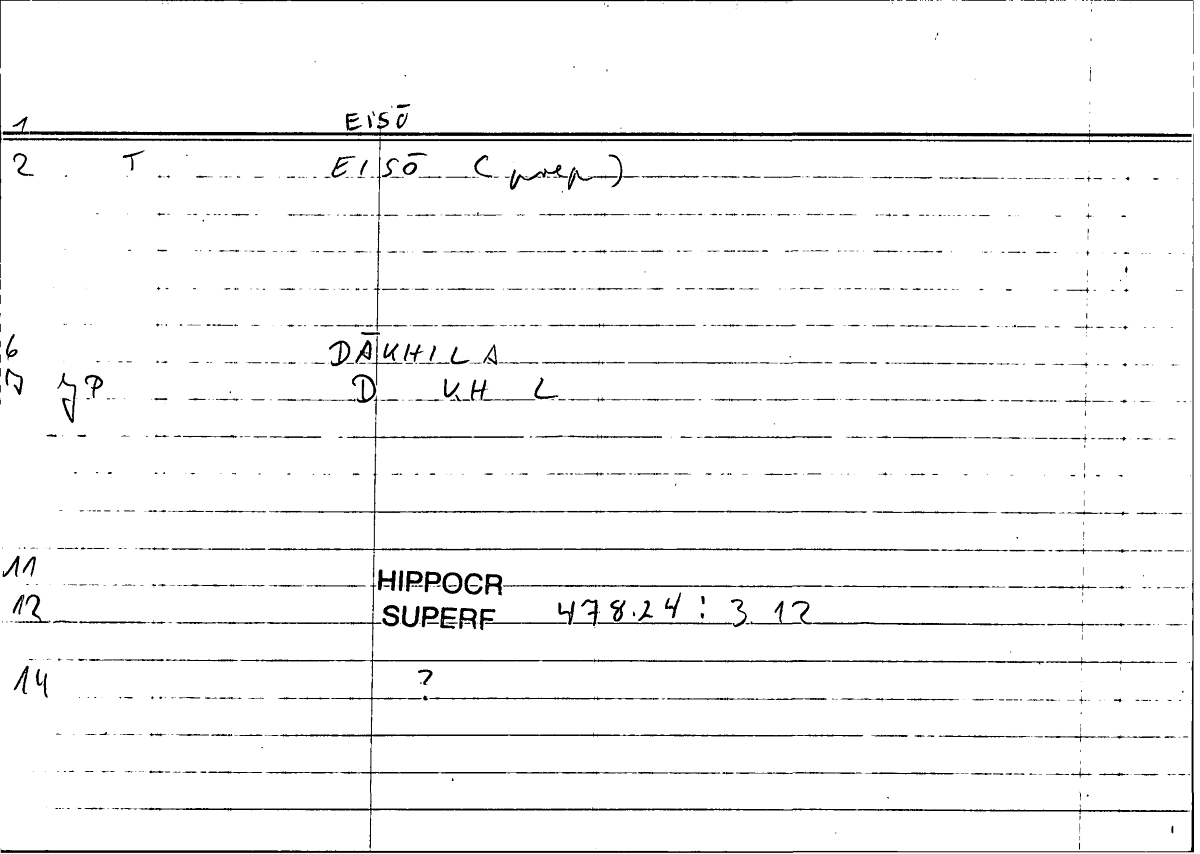 1 EISŌ
2 T EISŌ (prep)
6 DĀKHILA
D KH L
11 HIPPOCR
12 SUPERF 478.24 : 3 12
14 ?